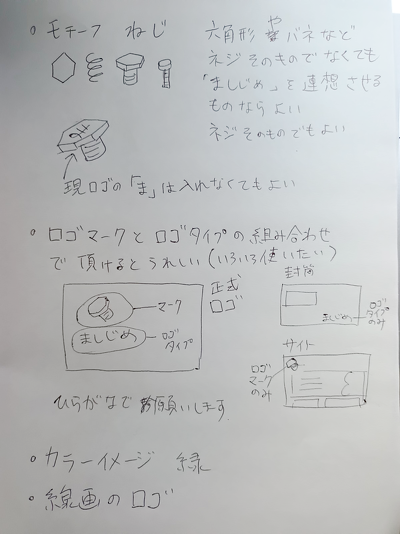 ○ モチーフ ねじ
六角形やバネなど
ネジそのものでなくても
「ましじめ」を連想させる
ものならよい
ネジそのものでもよい
ま
現ロゴの「ま」は入れなくてもよい
○ ロゴマークとロゴタイプの組み合わせ
で頂けるとうれしい(いろいろ使いたい)
正式
ロゴ
マーク
ましじめ
ロゴ
タイプ
封筒
ましじめ
ロゴ
タイプ
のみ
サイト
ロゴ
マーク
のみ
ひらがなでお願いします
○ カラーイメージ 緑
○ 線画のロゴ